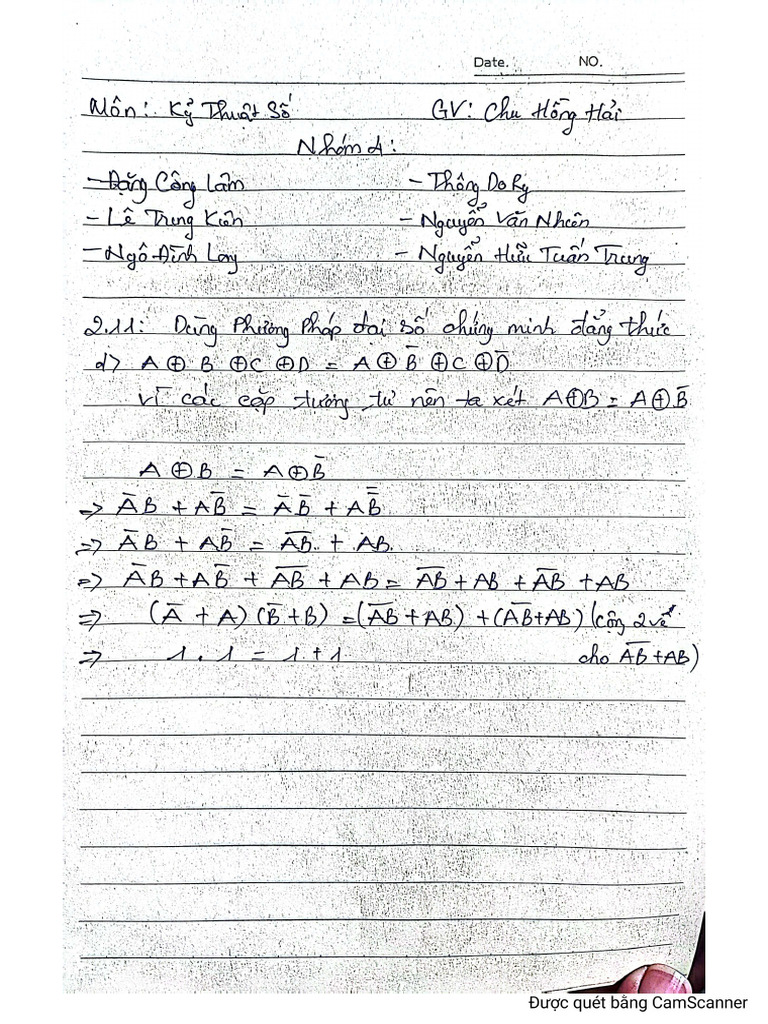 Date. NO.
Môn: Kỷ Thuật Số GV: Chu Hồng Hải
Nhóm 4:
- Đặng Công Lâm - Thông Do Ry
- Lê Trung Kiên - Nguyễn Văn Nhiên
- Ngô Đình Lay - Nguyễn Hữu Tuấn Trung
2.11: Dùng Phương Pháp đại số chứng minh đẳng thức
d> A ⊕ B ⊕ C ⊕ D = A ⊕ B̅ ⊕ C ⊕ D̅
Vì các cặp tương tự nên ta xét A⊕B = A⊕B̅
A ⊕ B = A ⊕ B̅
=> A̅B + AB̅ = A̅ B̅ + AB̿
=> A̅B + AB̅ = A̅B̅ + AB
=> A̅B + AB̅ + A̅B̅ + AB = A̅B̅ + AB + A̅B̅ + AB
=> (A̅ + A) (B̅ + B) = (A̅B̅ + AB) + (A̅B̅ + AB) (cộng 2 vế
=> 1 . 1 = 1 + 1 cho A̅B̅ + AB)
Được quét bằng CamScanner